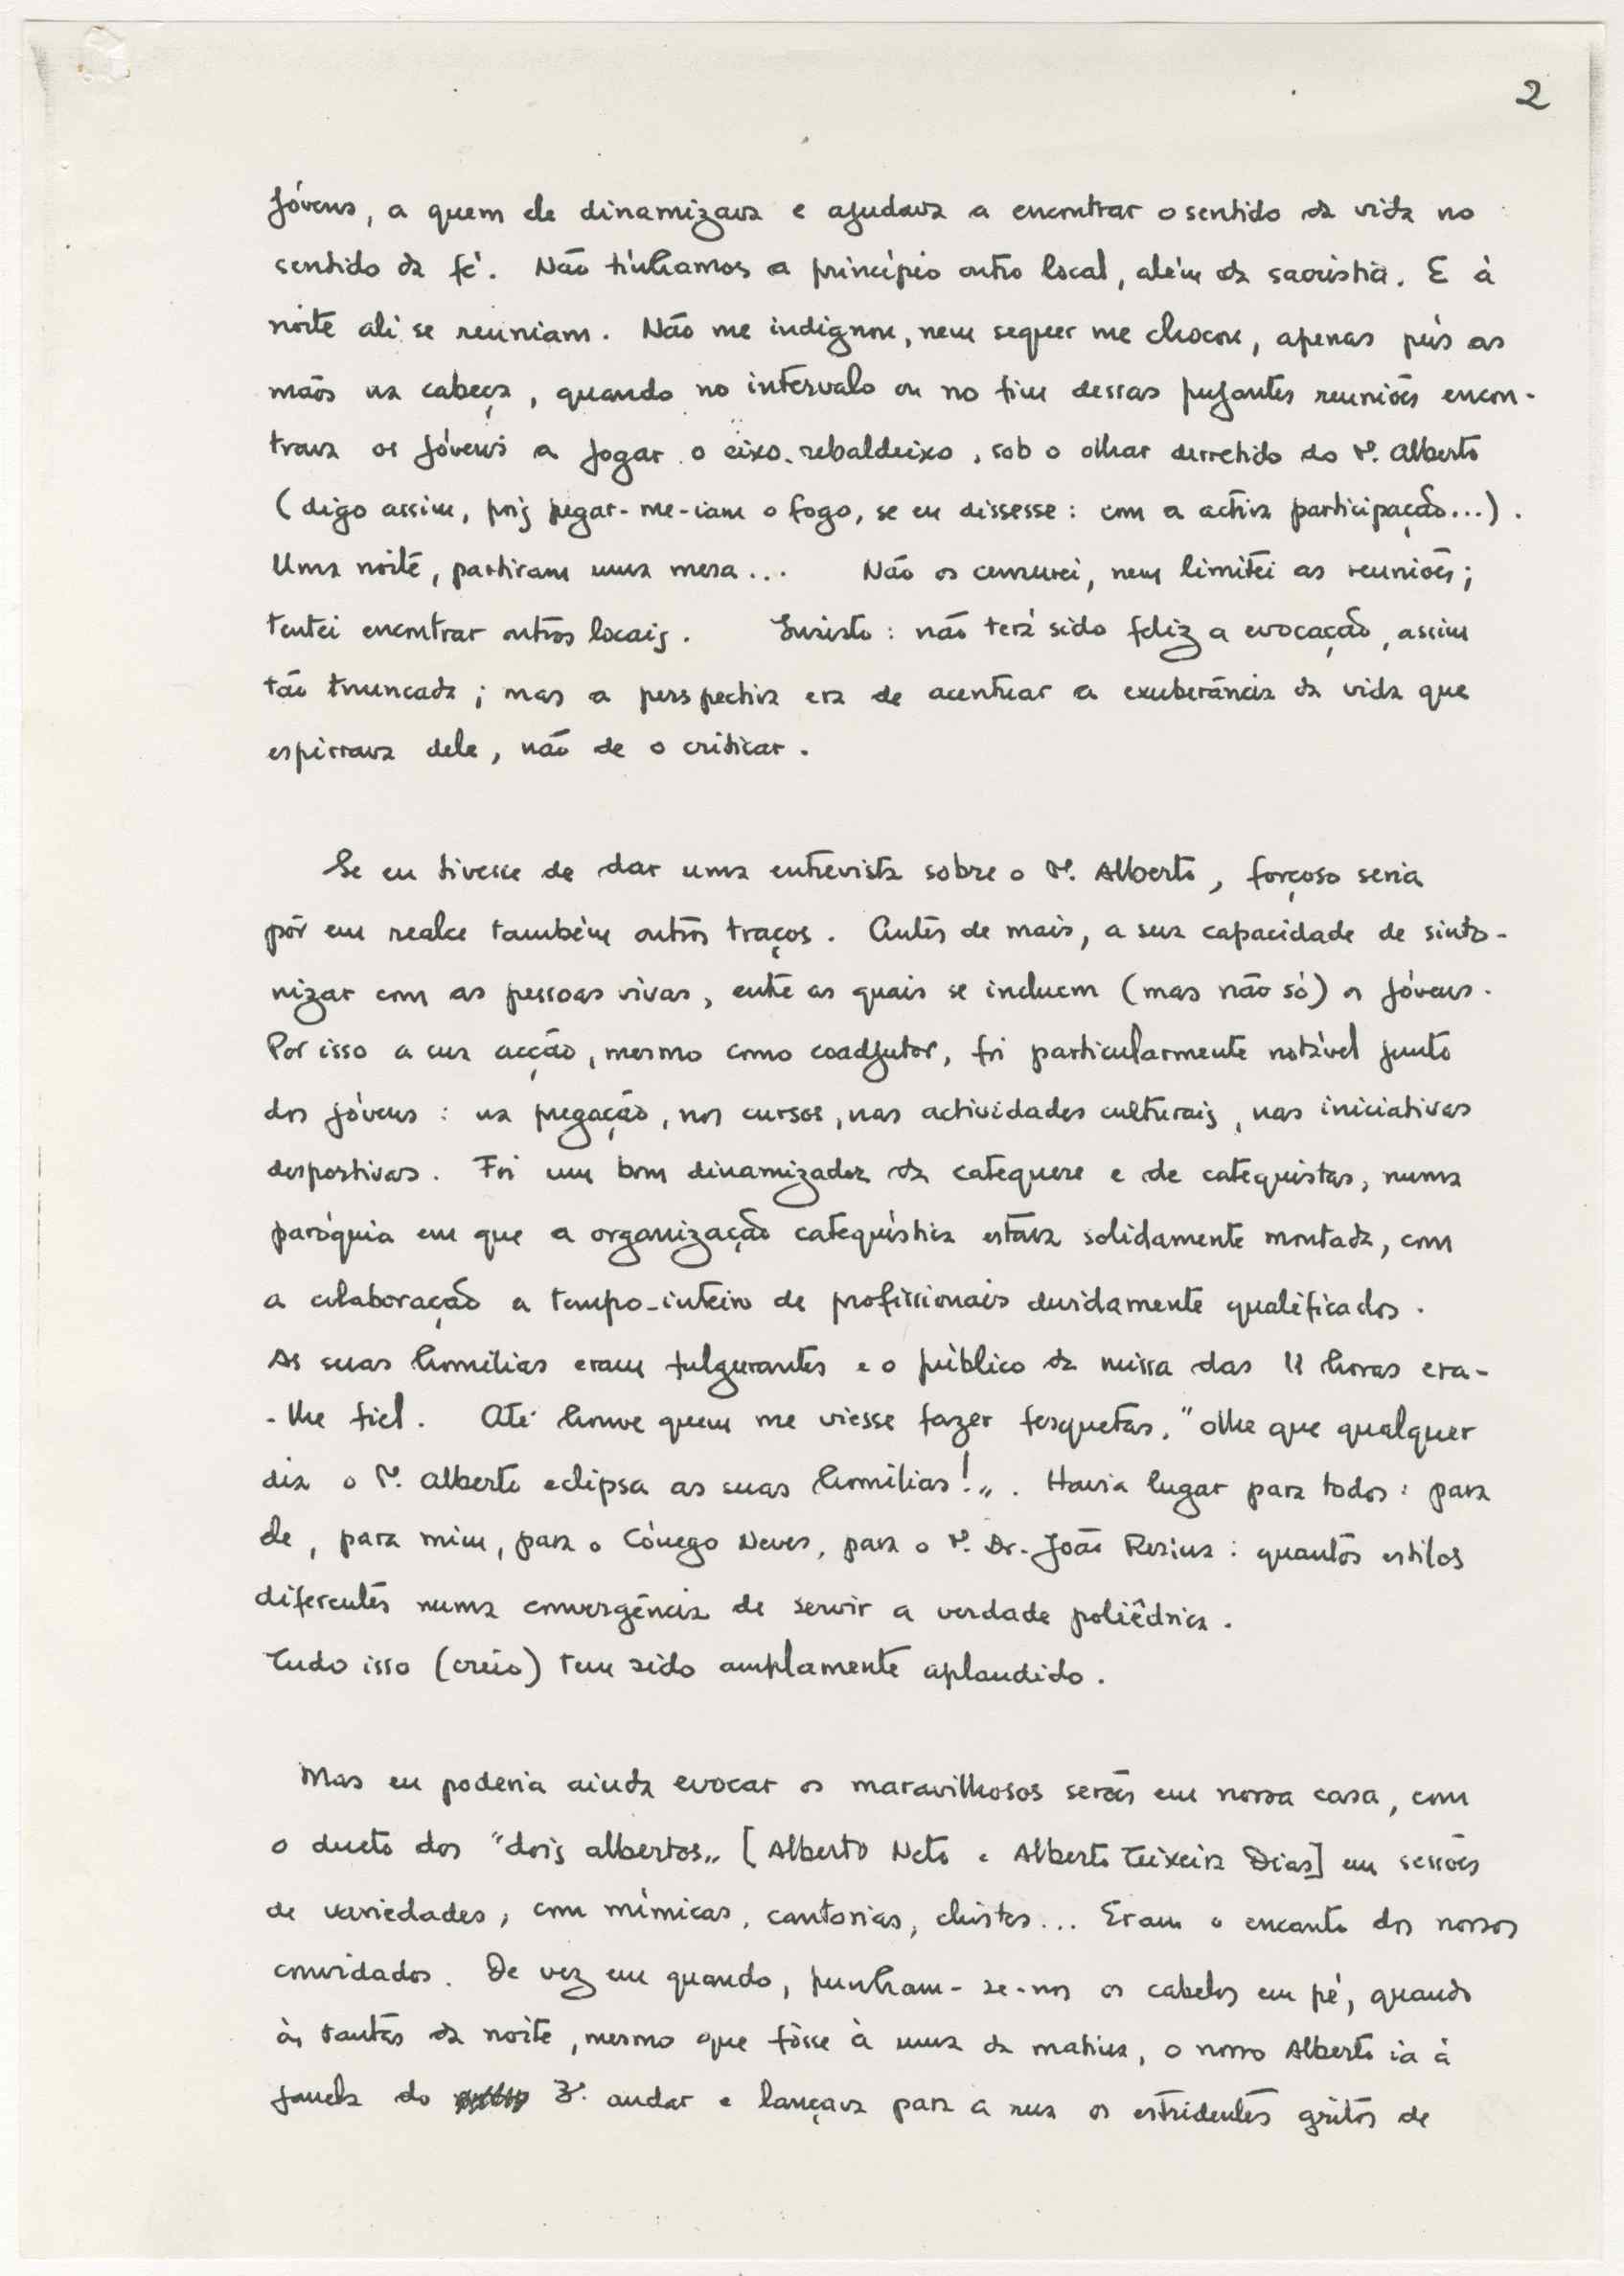 2
jóvens, a quem ele dinamizava e ajudava a encontrar o sentido da vida no
sentido da fé. Não tínhamos a princípio outro local, além da sacristia. E à
noite ali se reuniam. Não me indignou, nem sequer me chocou, apenas pús as
mãos na cabeça, quando no intervalo ou no fim dessas pujantes reuniões encon-
trava os jóvens a jogar o eixo-rebaldeixo, sob o olhar derretido do P. Alberto
(digo assim, pois pegar-me-iam o fogo, se eu dissesse: com a activa participação...).
Uma noite, partiram uma mesa... Não os censurei, nem limitei as reuniões;
tentei encontrar outros locais. Insisto: não terá sido feliz a evocação, assim
tão truncada; mas a perspectiva era de acentuar a exuberância da vida que
espirrava dele, não de o criticar.
Se eu tivesse de dar uma entrevista sobre o P. Alberto, forçoso seria
pôr em realce também outros traços. Antes de mais, a sua capacidade de sinto-
nizar com as pessoas vivas, entre as quais se incluem (mas não só) os jóvens.
Por isso a sua acção, mesmo como coadjutor, foi particularmente notável junto
dos jóvens: na pregação, nos cursos, nas actividades culturais, nas iniciativas
desportivas. Foi um bom dinamizador da catequese e de catequistas, numa
paróquia em que a organização catequística estava solidamente montada, com
a colaboração a tempo-inteiro de profissionais devidamente qualificados.
As suas homilias eram fulgurantes e o público da missa das 11 horas era-
-lhe fiel. Até houve quem me viesse fazer fosquetas, "olhe que qualquer
dia o P. Alberto eclipsa as suas homilias!". Havia lugar para todos: para
ele, para mim, para o Cónego Neves, para o P. Dr. João Resina: quantos estilos
diferentes numa convergência de servir a verdade poliêdrica.
Tudo isso (creio) tem sido amplamente aplaudido.
Mas eu poderia ainda evocar os maravilhosos serões em nossa casa, com
o dueto dos "dois albertos" [Alberto Neto e Alberto Teixeira Dias] em sessões
de variedades, com mímicas, cantorias, chistes... Eram o encanto dos nossos
convidados. De vez em quando, punham-se-nos os cabelos em pé, quando
às tantas da noite, mesmo que fôsse à uma da matina, o nosso Alberto ia à
janela do 3º. andar e lançava para a rua os estridentes gritos de